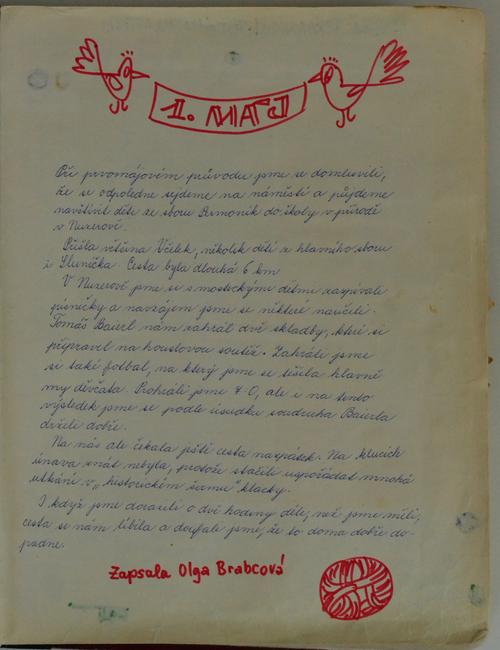 1. MÁJ
Při prvomájovém průvodu jsme se domluvili,
že se odpoledne sejdeme na náměstí a půjdeme
navštívit děti ze sboru Permoník do školy v přírodě
v Nuzerově.
Přišla většina Včelek, několik dětí z hlavního sboru
i Slunička. Cesta byla dlouhá 6 km
V Nuzerově jsme si s mosteckými dětmi zazpívali
písničky a navzájem jsme se některé naučili.
Tomáš Baierl nám zahrál dvě skladby, které si
připravil na houslovou soutěž. Zahráli jsme
si také fotbal, na který jsme se těšila hlavně
my děvčata. Prohráli jsme 7-0, ale i na tento
výsledek jsme se podle úsudku soudruha Baierla
drželi dobře.
Na nás ale čekala ještě cesta nazpátek. Na klucích
únava znát nebyla, protože stačili uspořádat mnohá
utkání v „historickém šermu" klacky.
I když jsme dorazili o dvě hodiny déle, než jsme měli,
cesta se nám líbila a doufali jsme, že to doma dobře do-
padne.
Zapsala Olga Brabcová